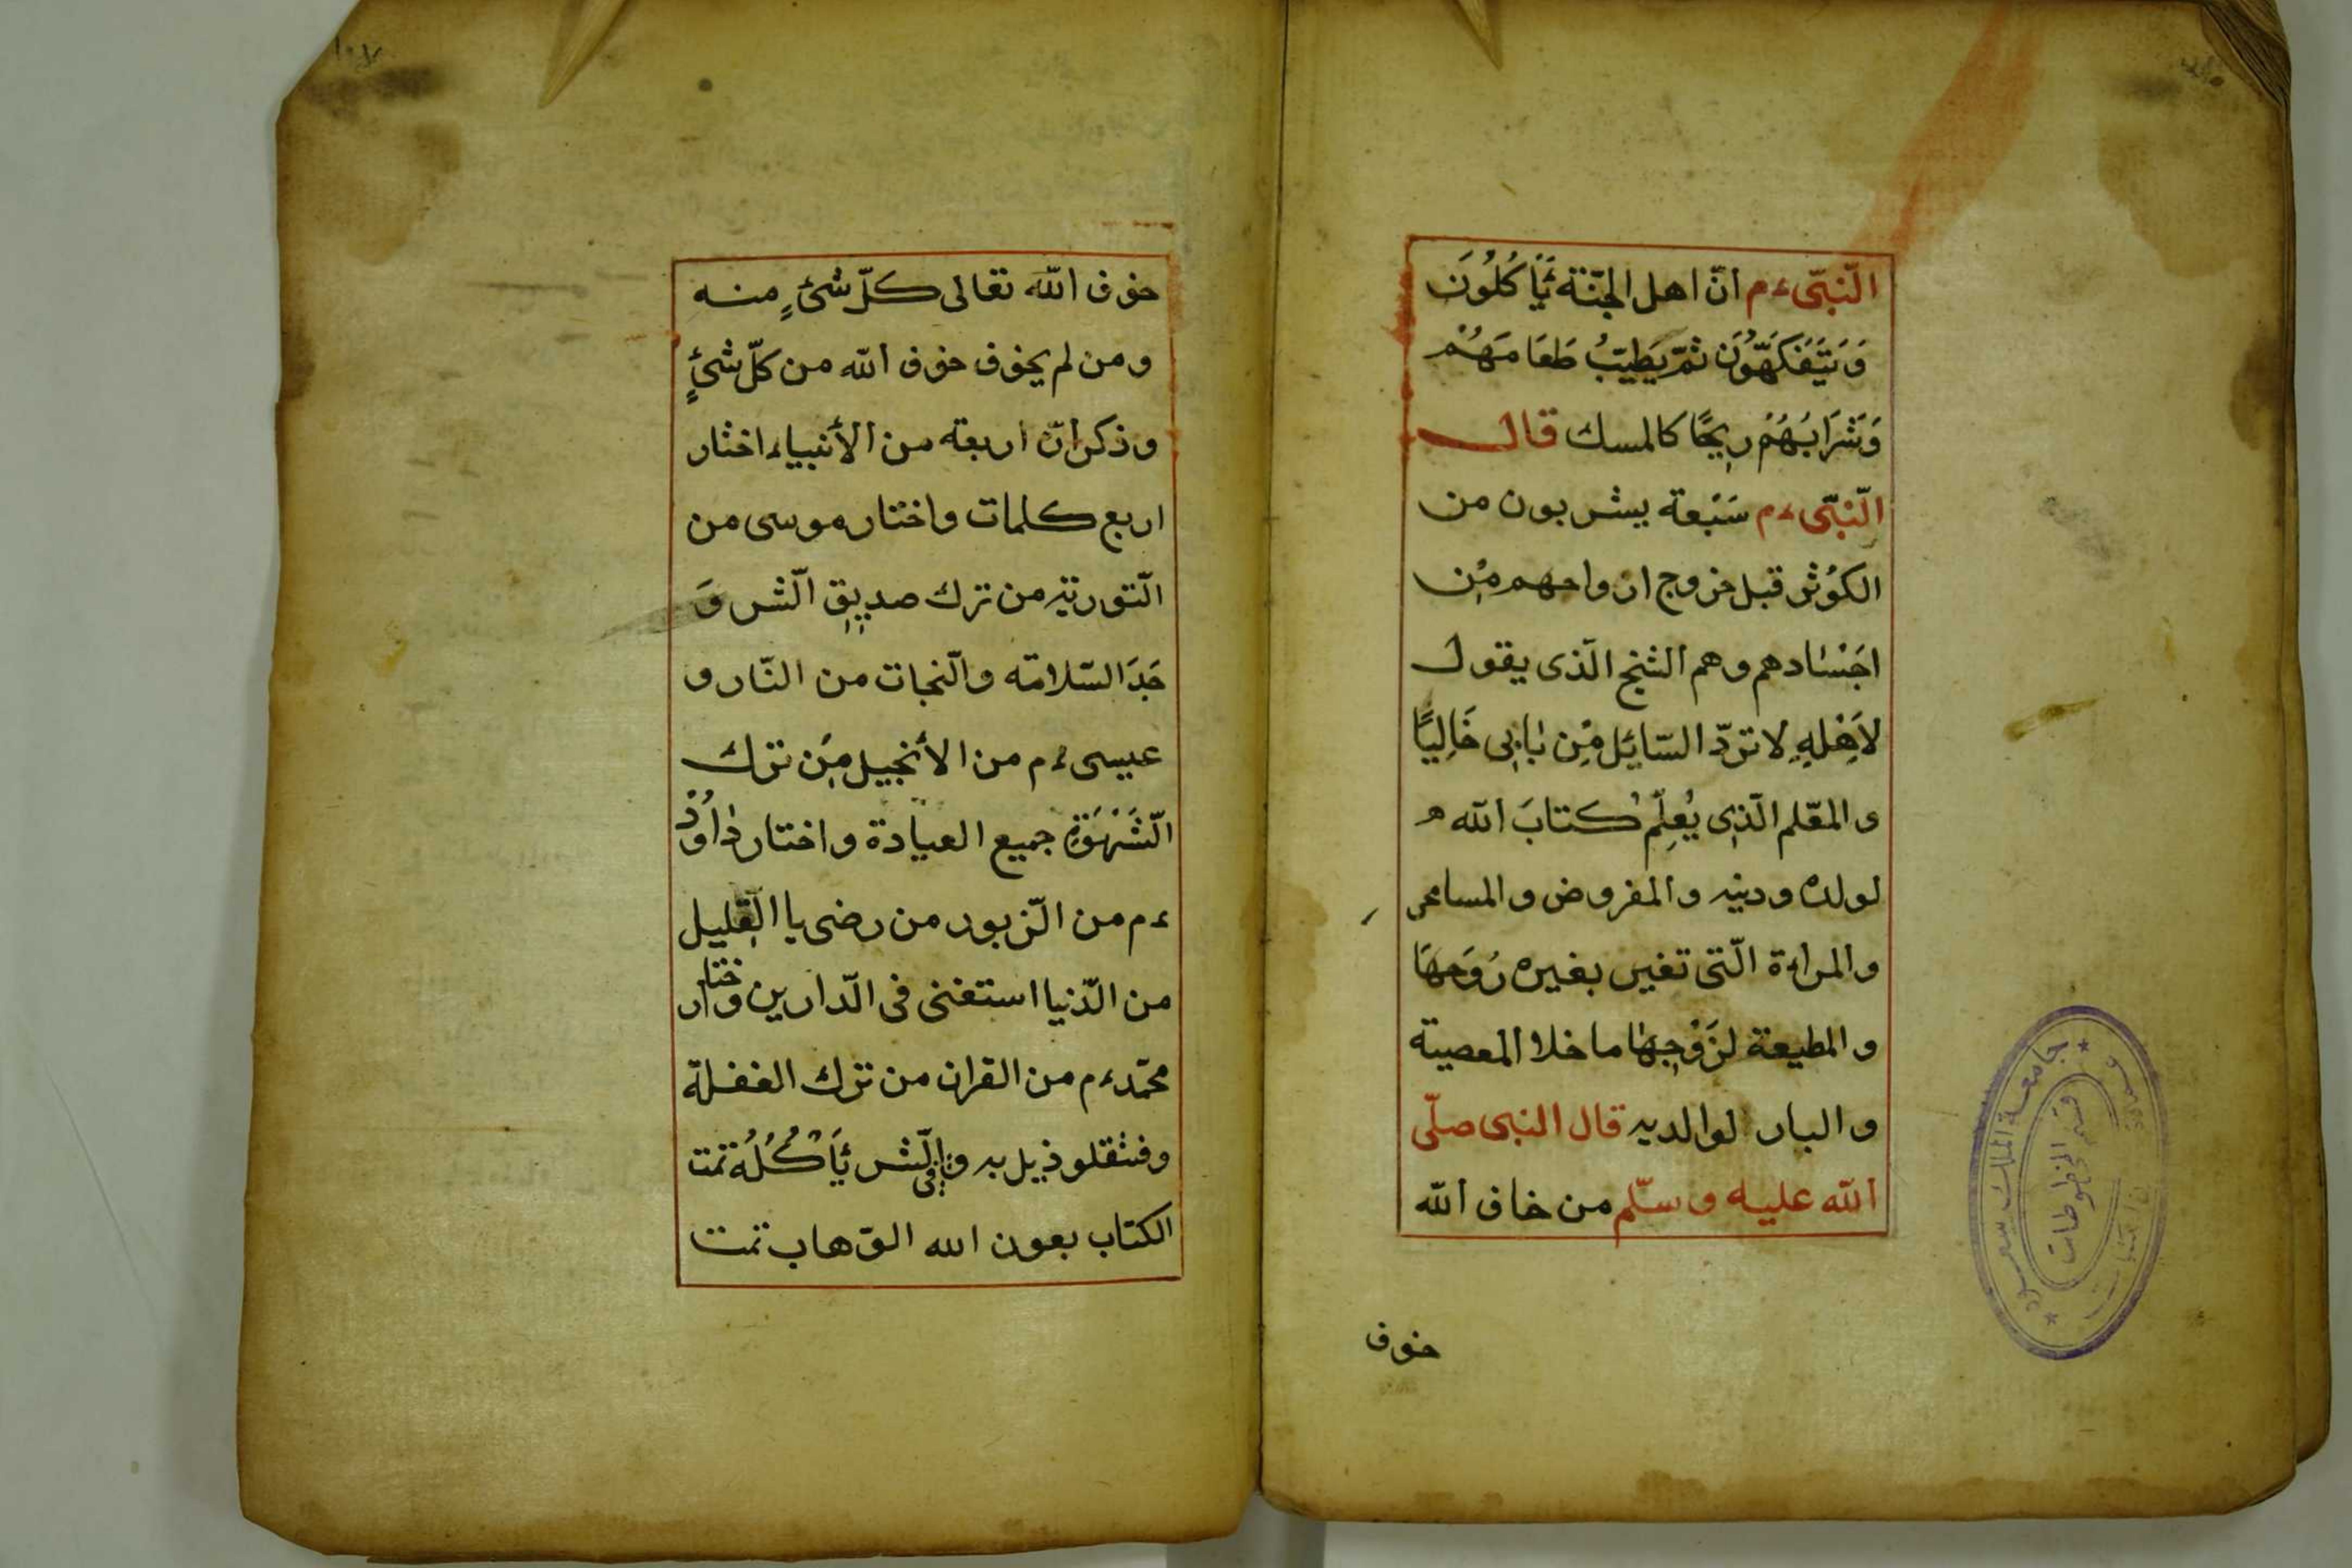 النّبىّ ءم انّ اهل الجنّة يَأكُلُونَ
وَيَتَفَكَهَّوُنَ ثمّ يَطِيبُ طَعَامَهُمْ
وَشَرَابُهُمْ رِيحًا كالمسك قال
النّبىّ ءم سَبْعة يشربون من
الكوُثر قبل خروج ارواحهم مِن
اجَسْادهم وهم الشيخ الّذى يقول
لاَهْلِهِ لا تردّ السّايُل مِن بٰابِى خَالِيًا
والمعّلم الّذِى يُعِلّمُ كتابَ الله
لولده ودينه والمفروض والمسامى
والمراءة الّتى تغير بغيره زوَجهَا
والمطيعة لزَوْجِهٰا ما خلا المعصية
والبار لوالديه قال النبى صلّى
الله عليه وسّلم من خاف الله
خوف
جامعة الملك سعود
قسم المخطوطات
خوف الله تعالى كلّ شئٍ منه
ومن لم يخوف خوف الله من كلّ شئٍ
وذكر انّ اربعه من الأنبياء اختار
اربع كلمات واختار موسى من
الّتوريٰة من ترك صديِقِ الّشر وَ
جَدَ السّلامته والّنجات من النّار و
عيسى ءم من الأنجيل مِن ترك
الّشَهْوَةِ جميع العبادة واختار دٰاوُدْ
ءم من الّزبور من رضى با القِليل
من الّدنيا استغنى فى الّدارين وختار
محمّد ءم من القران من ترك الغفلة
الّشر يَأكُلُهُ تمت
الكتاب بعون الله الوّهاب تمت